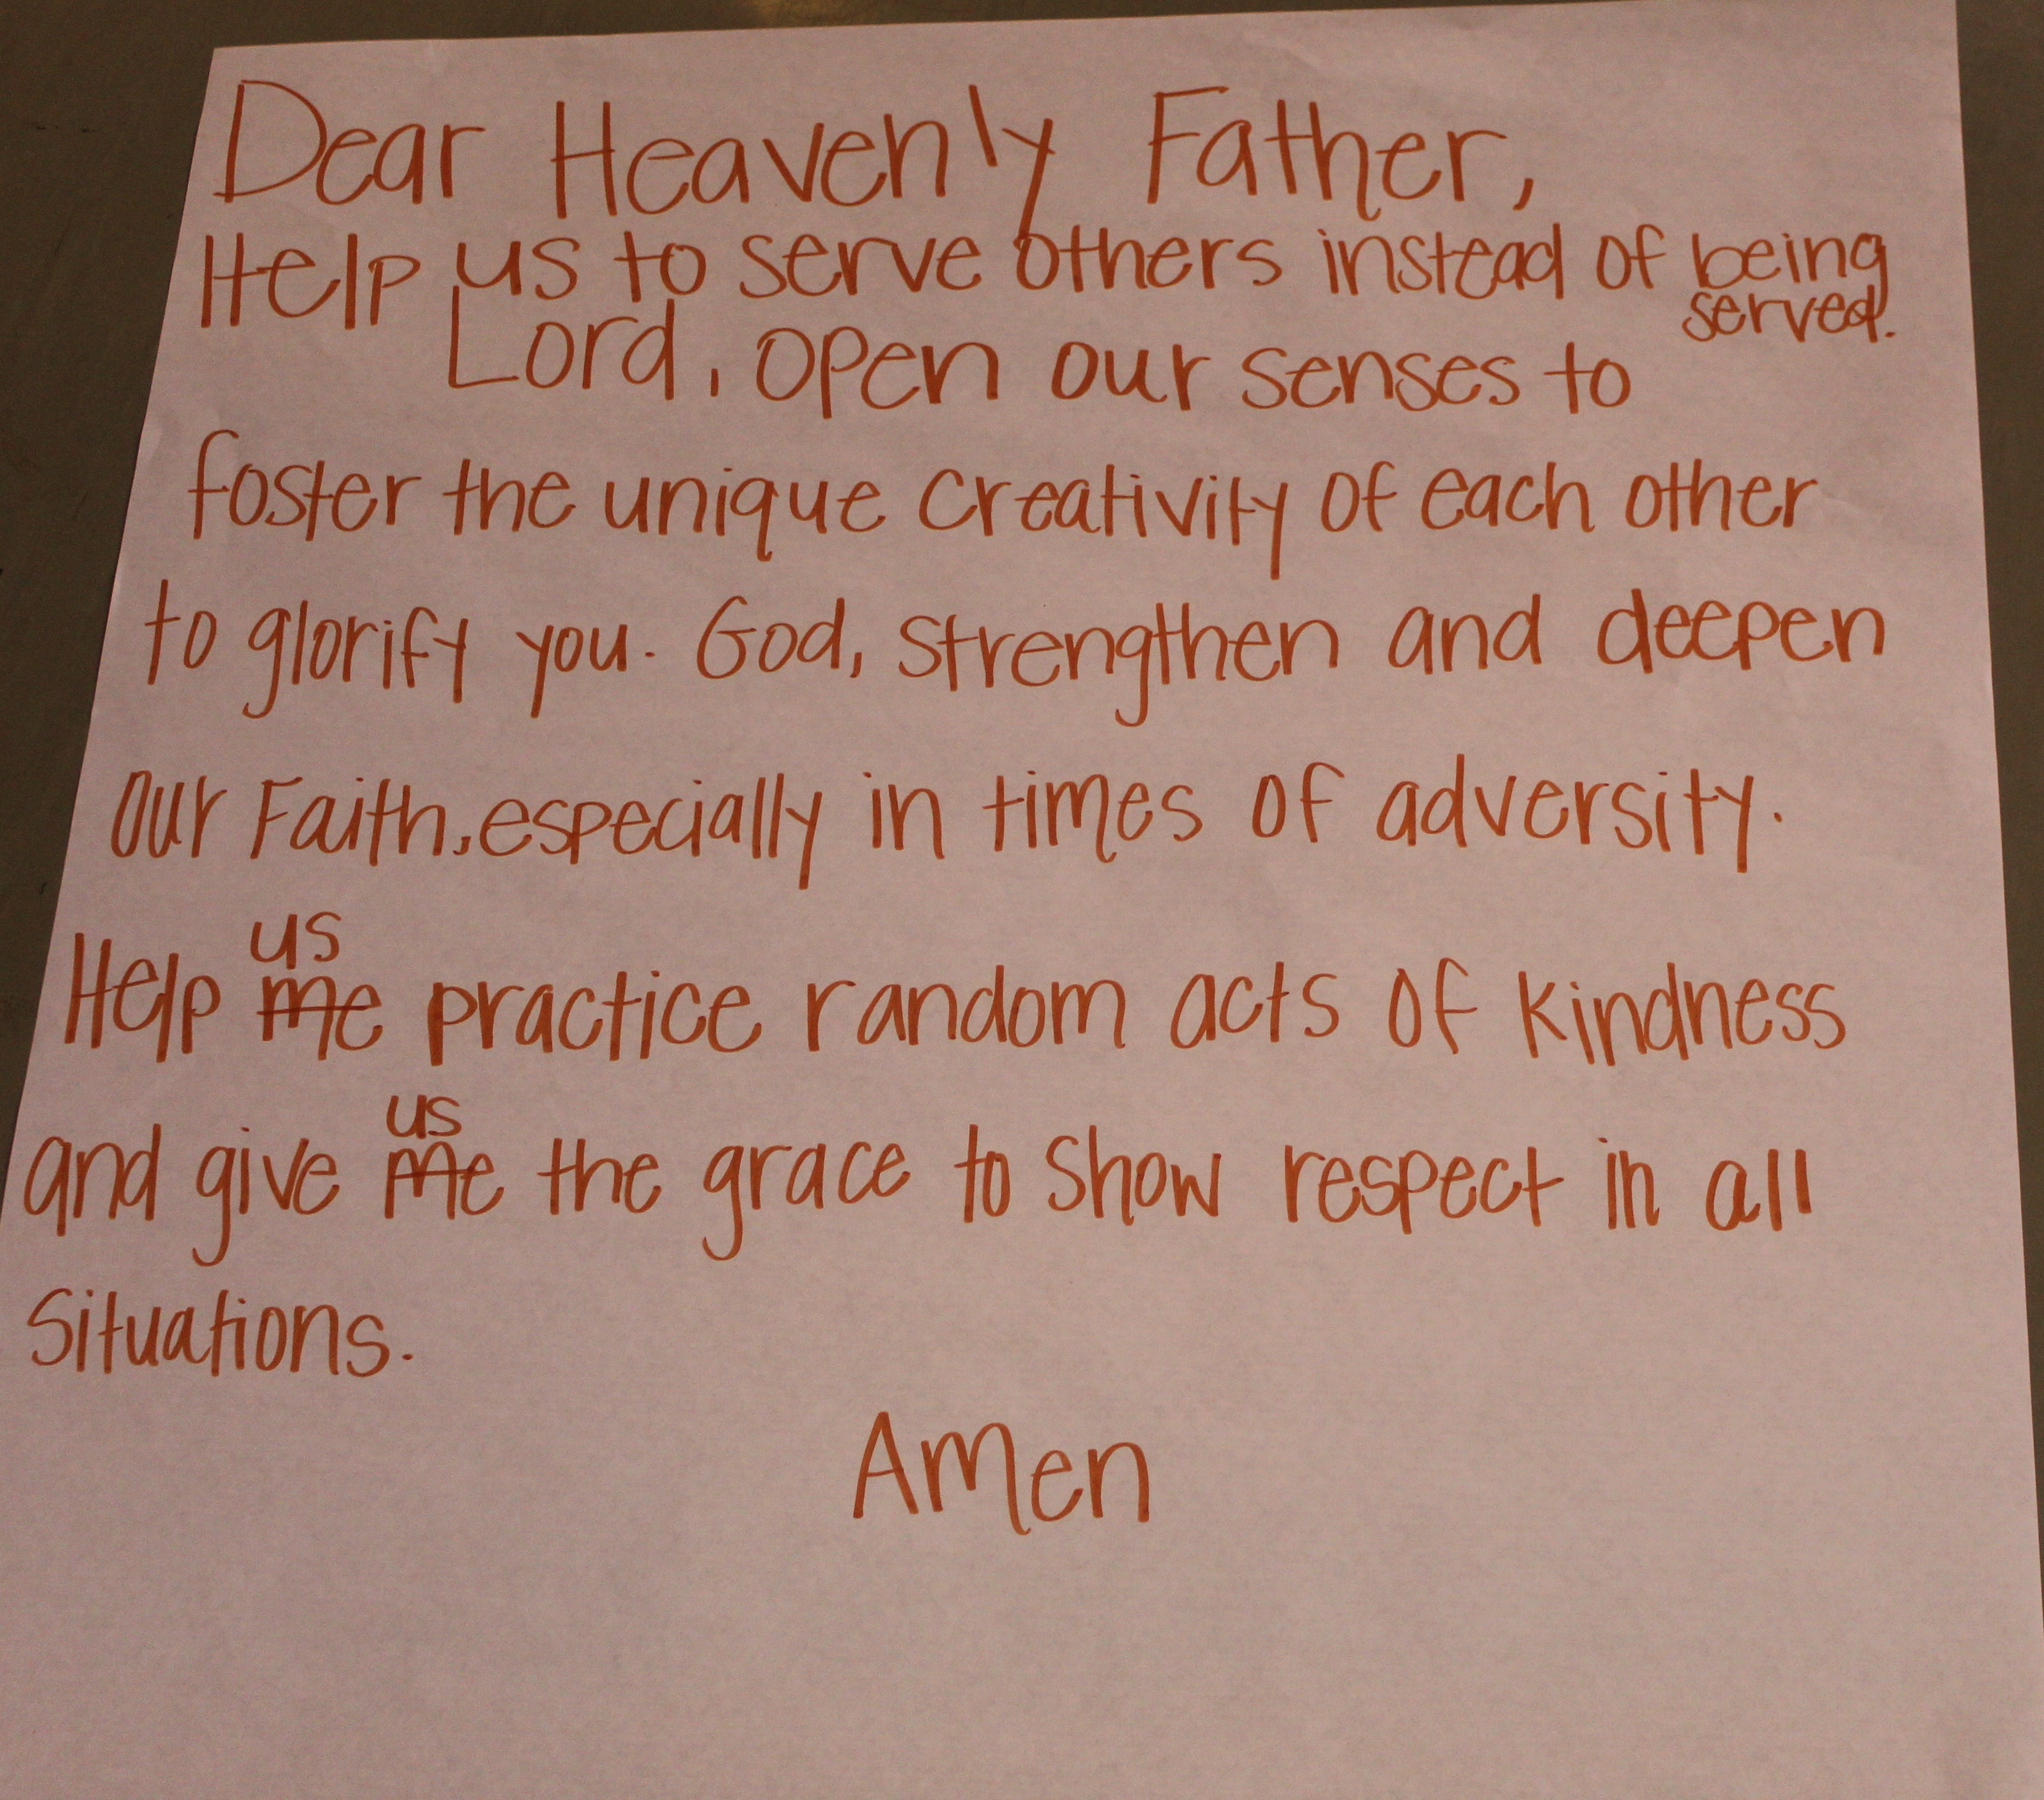 Dear Heavenly Father,
Help us to serve others instead of being
served.
Lord, open our senses to
foster the unique creativity of each other
to glorify you. God, strengthen and deepen
our Faith, especially in times of adversity.
us
Help me practice random acts of kindness
us
and give me the grace to show respect in all
situations.
Amen